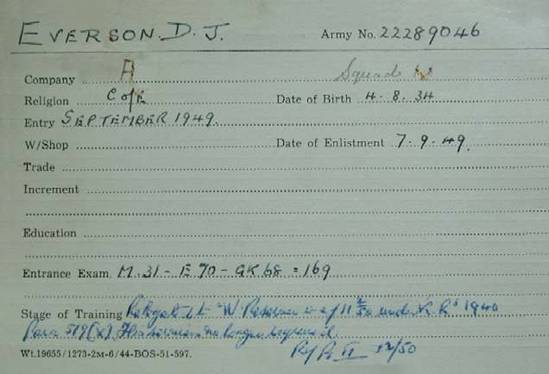 EVERSON. D. J. Army No. 22289046
Company A Squad
Religion C of E Date of Birth 4. 8. 34
Entry SEPTEMBER 1949.
W/Shop Date of Enlistment 7. 9. 49.
Trade
Increment
Education
Entrance Exam. M. 31 - E 70 - GK 68 = 169
Stage of Training to "W" w.e.f. 11 50 under K.R's 1940
Para 519 (X). His services no longer required.
II 12/50
Wt.19655/1273-2M-6/44-BOS-51-597.